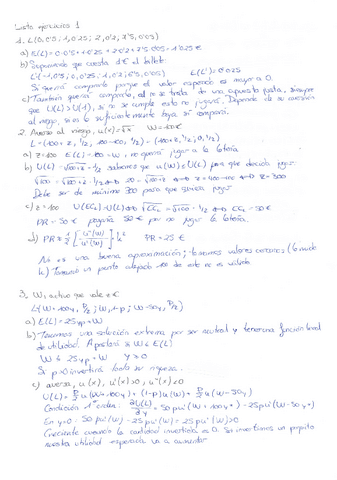 Lista ejercicios 1
1. L(0,0'5; 1,0'25; 2,0'2; 3'5,0'05)
a) E(L) = 0·0'5 + 1·0'25 + 2·0'2 + 3'5·0'05
b) Supongamos que cuesta 1€ el billete.
L'(-1,0'5; 0,0'25; 1,0'2;
Sí querría comprarlo porque el valor esperado es mayor a 0.
c) También querría comprarlo, al no se trata de una apuesta justa, siempre
que U(L) > U(1), si no se cumple esto no jugará. Depende de su aversión
al riesgo, si es lo suficientemente baja sí comprará.
2. Averso al riesgo, u(x)=√x W=100€
L=(100+z, 1/2; 100-100, 1/2) - (100+z, 1/2; 0, 1/2)
a) z=100 no querría jugar a la lotería
b) U(L) = √100+z · 1/2 sabemos que u(W) ≤ U(L) para que decida jugar
√100 = √100+z · 1/2 z=300
Debe ser de mínimo 300 para que quiera jugar
c) z=100
PR=50€ pagaría 50€ por no jugar la lotería.
d) PR = 25€
No es una buena aproximación; tomamos valores cercanos
3. W; activo que vale
L(W+100y, P/2; W, 1-p; W-50y, P/2)
a) E(L) = 25yp + W
b) Tenemos una solución extrema por ser neutral y tener una función lineal
de utilidad. Apostará si W ≤ E(L)
W ≤ 25yp + W y ≥ 0
Si p>0 invertirá toda su riqueza.
c) averso, u(x), u'(x)>0, u''(x)<0
U(L) = P/2 u(W+100y) + (1-p)u(W) + P/2 u(W-50y)
Condición 1er orden: ∂U(L)/∂y = 50pu'(W+100y) - 25pu'(W-50y)
En y=0 - 50pu'(W) - 25pu'(W) = 25pu'(W) > 0
Creciente cuando la cantidad invertida es 0. Si invertimos un poquito
nuestra utilidad esperada va a aumentar